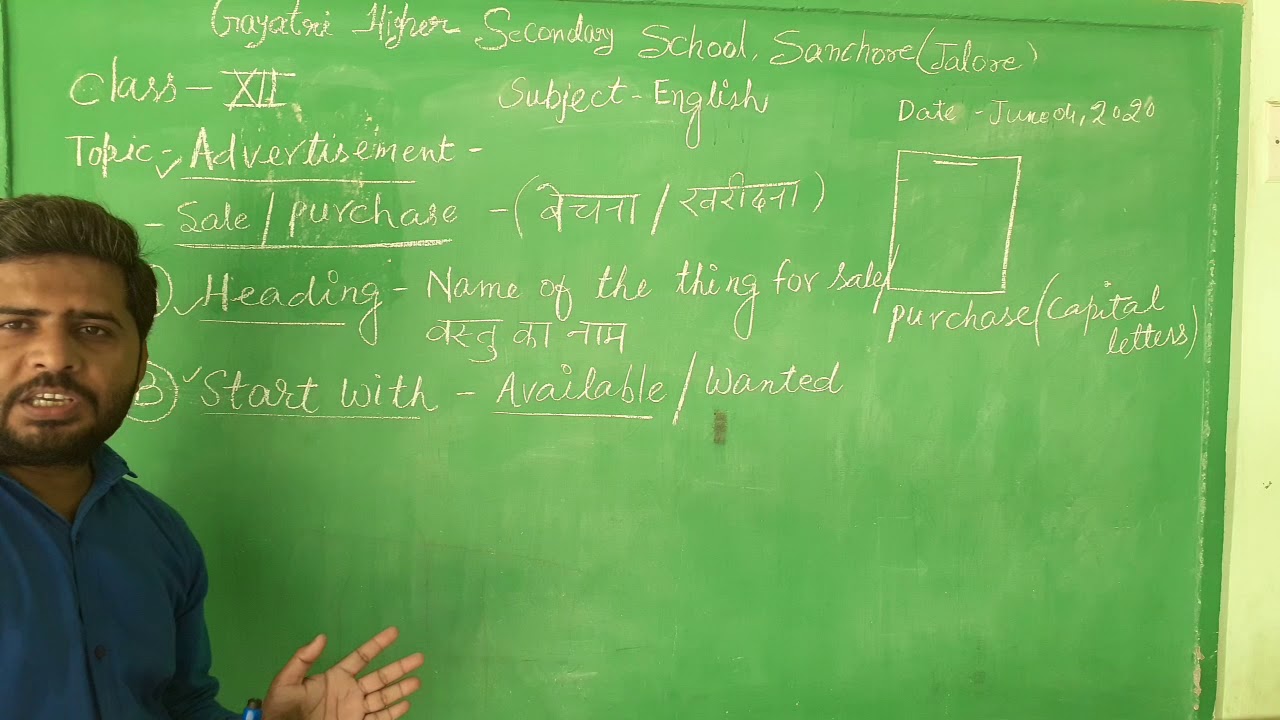 Gayatri Higher Secondary School, Sanchore (Jalore)
Class - XII Subject - English Date - June 04, 2020
Topic - Advertisement -
- Sale / purchase - (बेचना / खरीदना)
Heading - Name of the thing for sale/
purchase (Capital letters)
वस्तु का नाम
B Start with - Available / Wanted